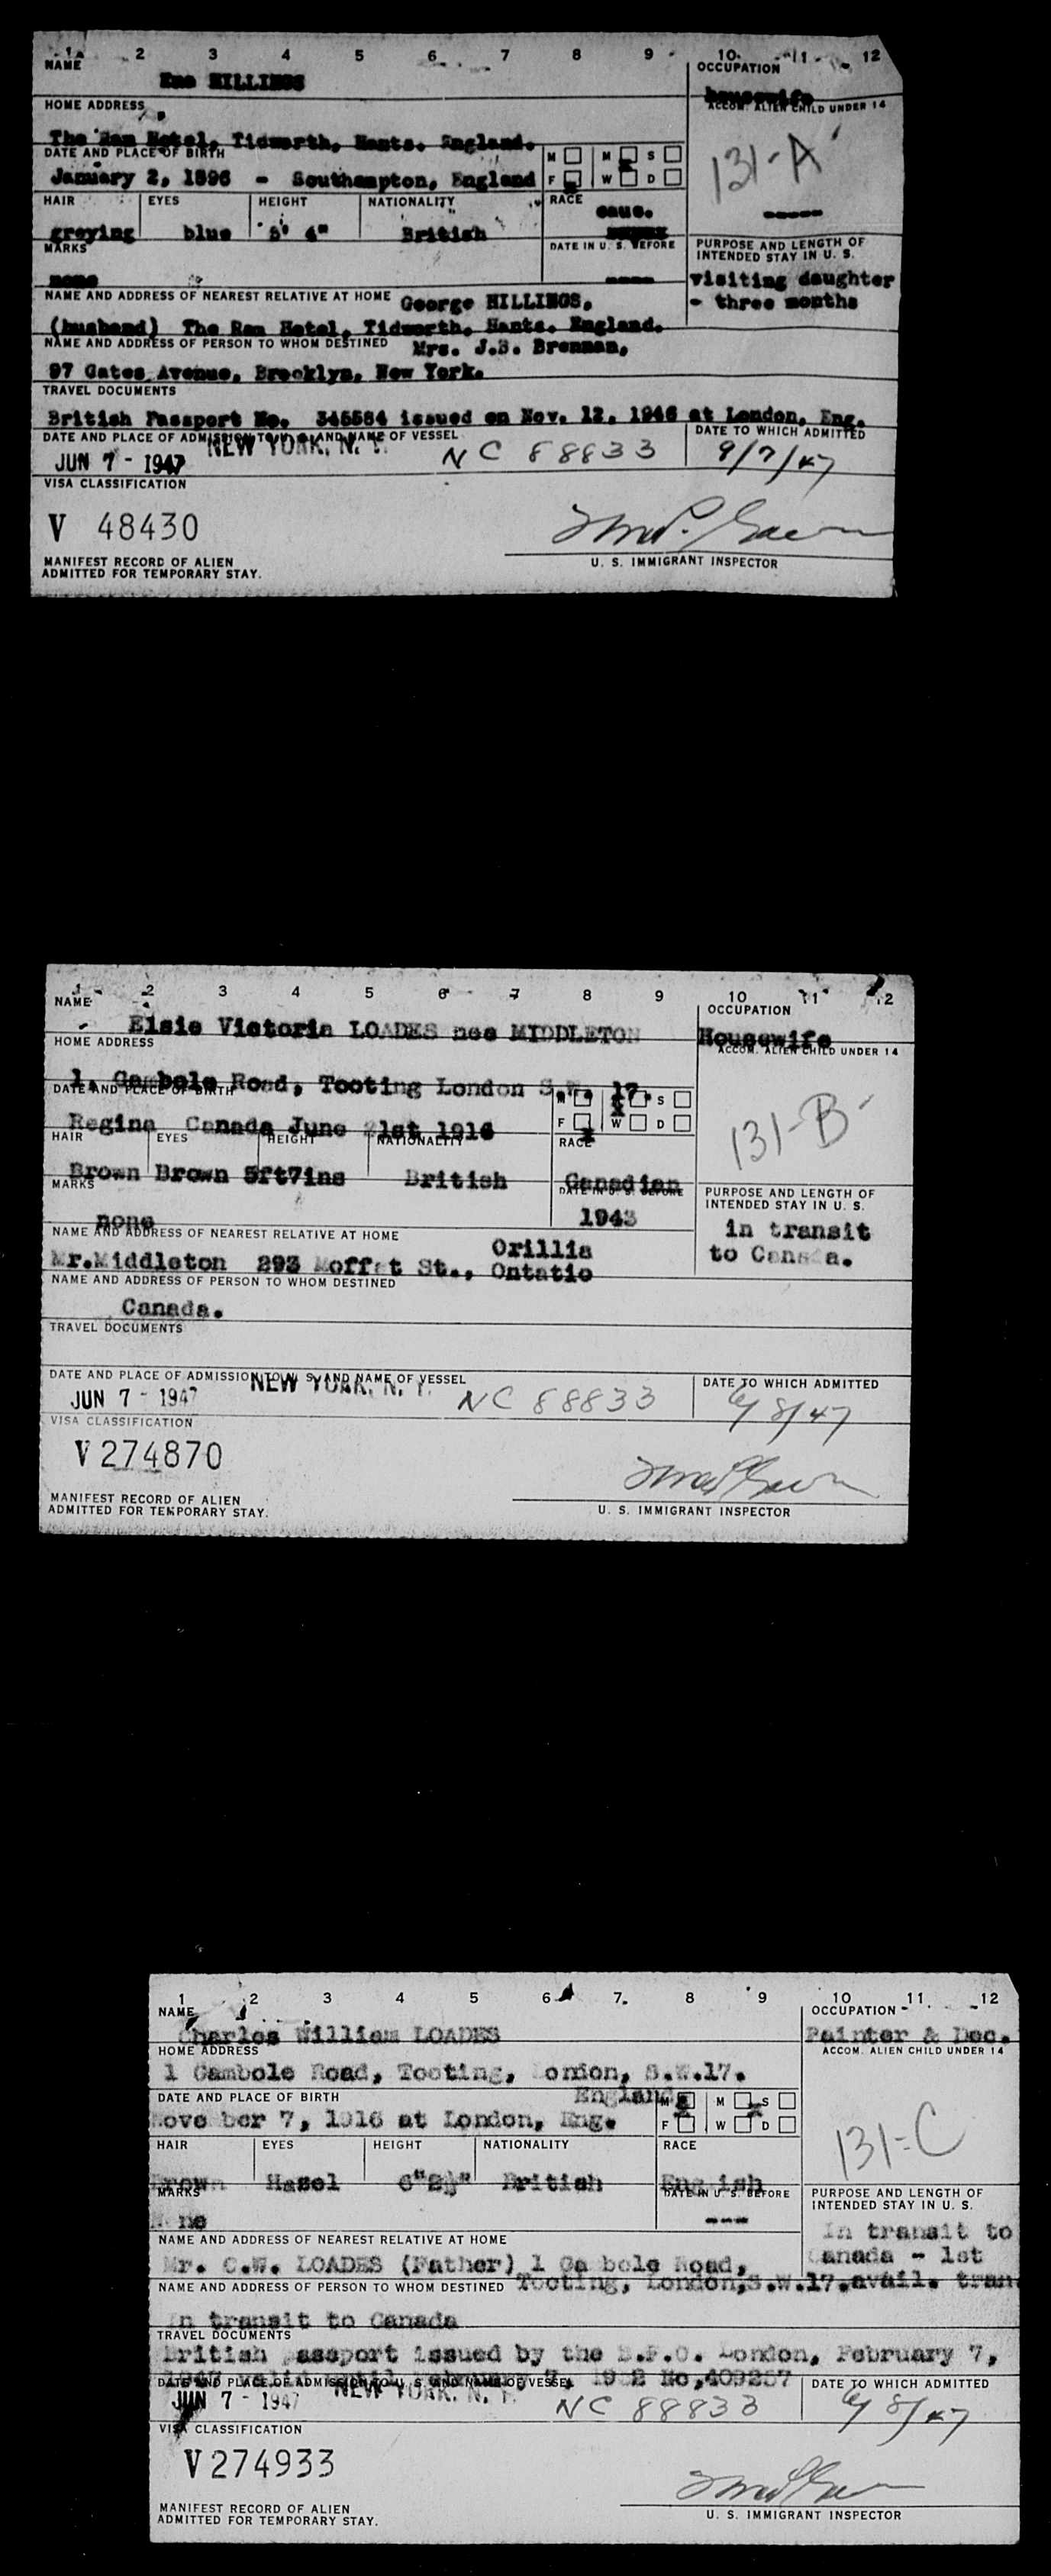 1 2 3 4 5 6 7 8 9 10 11 12
NAME OCCUPATION
HILLINGS housewife
HOME ADDRESS ACCOM. ALIEN CHILD UNDER 14
The Ram Hotel, Tidworth, Hants. England. 131-A
DATE AND PLACE OF BIRTH M M S
January 2, 1896 - Southampton, England F W D
HAIR EYES HEIGHT NATIONALITY RACE
greying blue 5' 4" British cauc. -----
MARKS DATE IN U. S. BEFORE PURPOSE AND LENGTH OF INTENDED STAY IN U. S.
none ---- visiting daughter
NAME AND ADDRESS OF NEAREST RELATIVE AT HOME George HILLINGS, - three months
(husband) The Ram Hotel, Tidworth, Hants. England.
NAME AND ADDRESS OF PERSON TO WHOM DESTINED Mrs. J.S. Brennan,
97 Gates Avenue, Brooklyn, New York.
TRAVEL DOCUMENTS
British Passport No. 345584 issued on Nov. 12, 1946 at London, Eng.
DATE AND PLACE OF ADMISSION TO U. S. AND NAME OF VESSEL DATE TO WHICH ADMITTED
JUN 7 - 1947 NEW YORK, N. Y. NC 88833 9/7/47
VISA CLASSIFICATION
V 48430
MANIFEST RECORD OF ALIEN U. S. IMMIGRANT INSPECTOR
ADMITTED FOR TEMPORARY STAY.
1 2 3 4 5 6 7 8 9 10 11 12
NAME OCCUPATION
Elsie Victoria LOADES nee MIDDLETON Housewife
HOME ADDRESS ACCOM. ALIEN CHILD UNDER 14
1, Gambole Road, Tooting London S.W. 17.
DATE AND PLACE OF BIRTH M M S
Regina Canada June 21st 1916 F W D 131-B
HAIR EYES HEIGHT NATIONALITY RACE
Brown Brown 5ft7ins British Canadian
MARKS DATE IN U. S. BEFORE PURPOSE AND LENGTH OF INTENDED STAY IN U. S.
none 1943 in transit
NAME AND ADDRESS OF NEAREST RELATIVE AT HOME Orillia to Canada.
Mr.Middleton 293 Moffat St., Ontatio
NAME AND ADDRESS OF PERSON TO WHOM DESTINED
Canada.
TRAVEL DOCUMENTS
DATE AND PLACE OF ADMISSION TO U. S. AND NAME OF VESSEL DATE TO WHICH ADMITTED
JUN 7 - 1947 NEW YORK, N. Y. NC 88833 6/8/47
VISA CLASSIFICATION
V 274870
MANIFEST RECORD OF ALIEN U. S. IMMIGRANT INSPECTOR
ADMITTED FOR TEMPORARY STAY.
1 2 3 4 5 6 7 8 9 10 11 12
NAME OCCUPATION
Charles William LOADES Painter & Dec.
HOME ADDRESS ACCOM. ALIEN CHILD UNDER 14
1 Gambole Road, Tooting, London, S.W.17.
DATE AND PLACE OF BIRTH England M M S
November 7, 1916 at London, Eng. F W D 131-C
HAIR EYES HEIGHT NATIONALITY RACE
Brown Hazel 6"2½" British English
MARKS DATE IN U. S. BEFORE PURPOSE AND LENGTH OF INTENDED STAY IN U. S.
None --- In transit to
NAME AND ADDRESS OF NEAREST RELATIVE AT HOME Canada - 1st
Mr. C.W. LOADES (Father) 1 Gambole Road,
NAME AND ADDRESS OF PERSON TO WHOM DESTINED Tooting, London,S.W.17. avail. tran
In transit to Canada
TRAVEL DOCUMENTS
British passport issued by the London, February 7,
1947 valid until February 7, No,409257
DATE AND PLACE OF ADMISSION TO U. S. AND NAME OF VESSEL DATE TO WHICH ADMITTED
JUN 7 - 1947 NEW YORK, N. Y. NC 88833 6/8/47
VISA CLASSIFICATION
V 274933
MANIFEST RECORD OF ALIEN U. S. IMMIGRANT INSPECTOR
ADMITTED FOR TEMPORARY STAY.